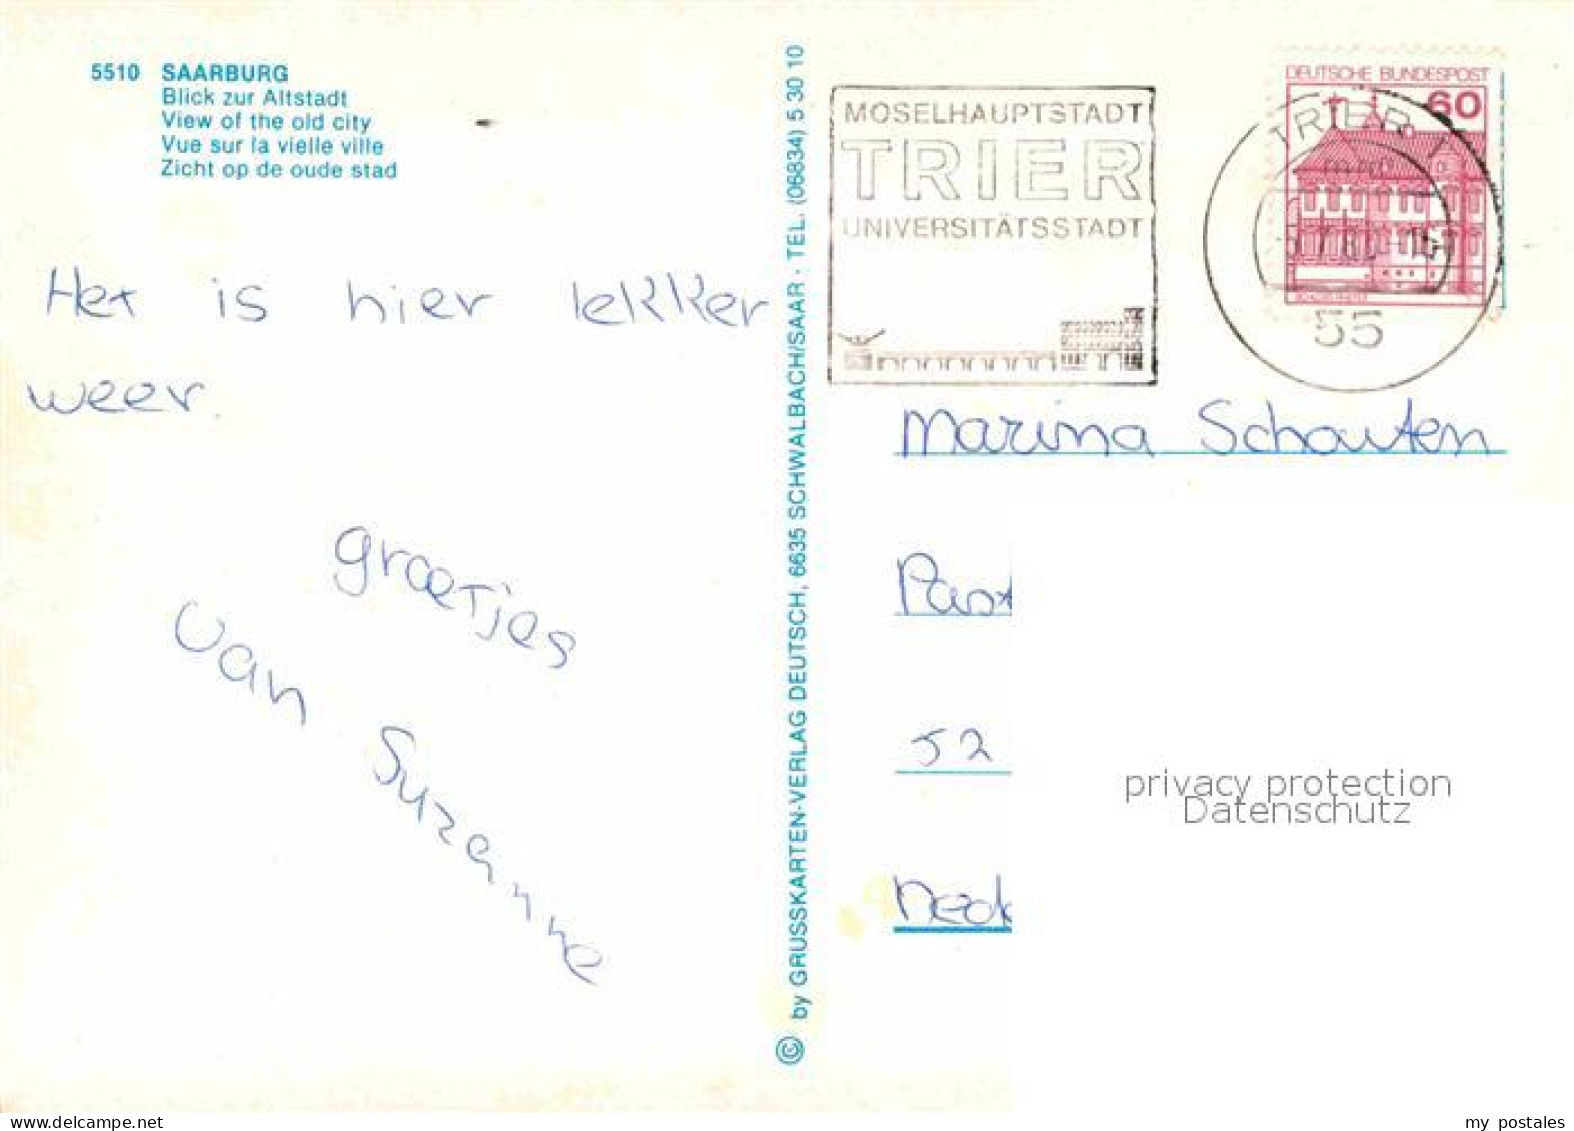 5510 SAARBURG
Blick zur Altstadt
View of the old city
Vue sur la vielle ville
Zicht op de oude stad
Het is hier lekker
weer.
groetjes
van Suzanne
© by GRUSSKARTEN-VERLAG DEUTSCH, 6635 SCHWALBACH/SAAR · TEL. (06834) 5 30 10
MOSELHAUPTSTADT
TRIER
UNIVERSITÄTSSTADT
DEUTSCHE BUNDESPOST
60
TRIER 1
55
Marina Schouten
Past
52
Nede
privacy protection
Datenschutz
www.delcampe.net
my postales